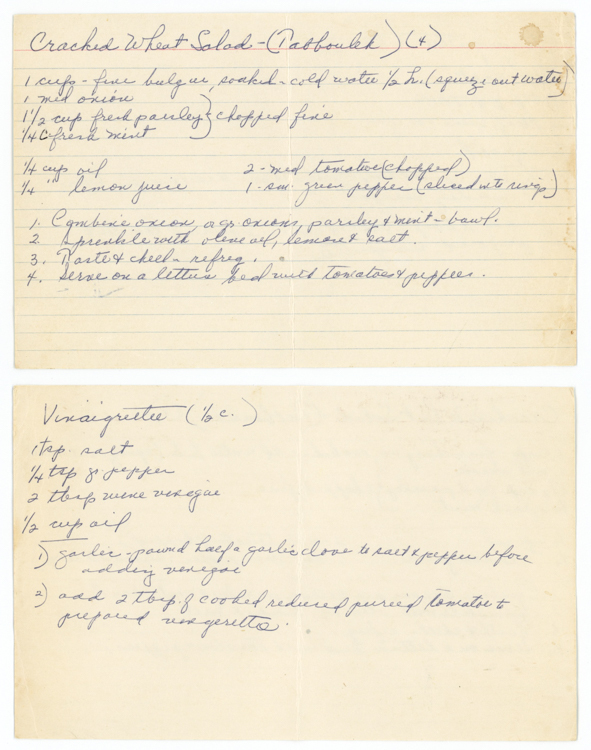 Cracked Wheat Salad - (Tabbouleh) (4)
1 cups - fine bulgar, soaked - cold water 1/2 hr. (squeeze out water)
1 med onion
1 1/2 cup fresh parsley } chopped fine
1/4 C fresh mint
1/4 cup oil 2 - med tomatoe (chopped)
1/4 " lemon juice 1 - sm. green pepper (sliced into rings)
1. Combine onion, gr. onions, parsley & mint - bowl.
2. Sprinkle with olive oil, lemon & salt.
3. Taste & chill - refreg.
4. Serve on a lettuce bed with tomatoes & peppers.
Vinaigrette (1/2 c.)
1 tsp. salt
1/4 tsp gr pepper
2 tbsp wine vinegar
1/2 cup oil
1) garlic - pound half a garlic clove to salt & pepper before
adding vinegar
2) add 2 tbsp. of cooked reduced puried tomatoe to
prepared vingerette.